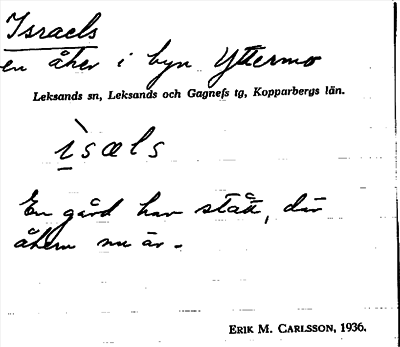 Israels
en åker i byn Yttermo
Leksands sn, Leksands och Gagnefs tg, Kopparbergs län.
ìsæls
En gård har stått, där
åkern nu är.
ERIK M. CARLSSON, 1936.